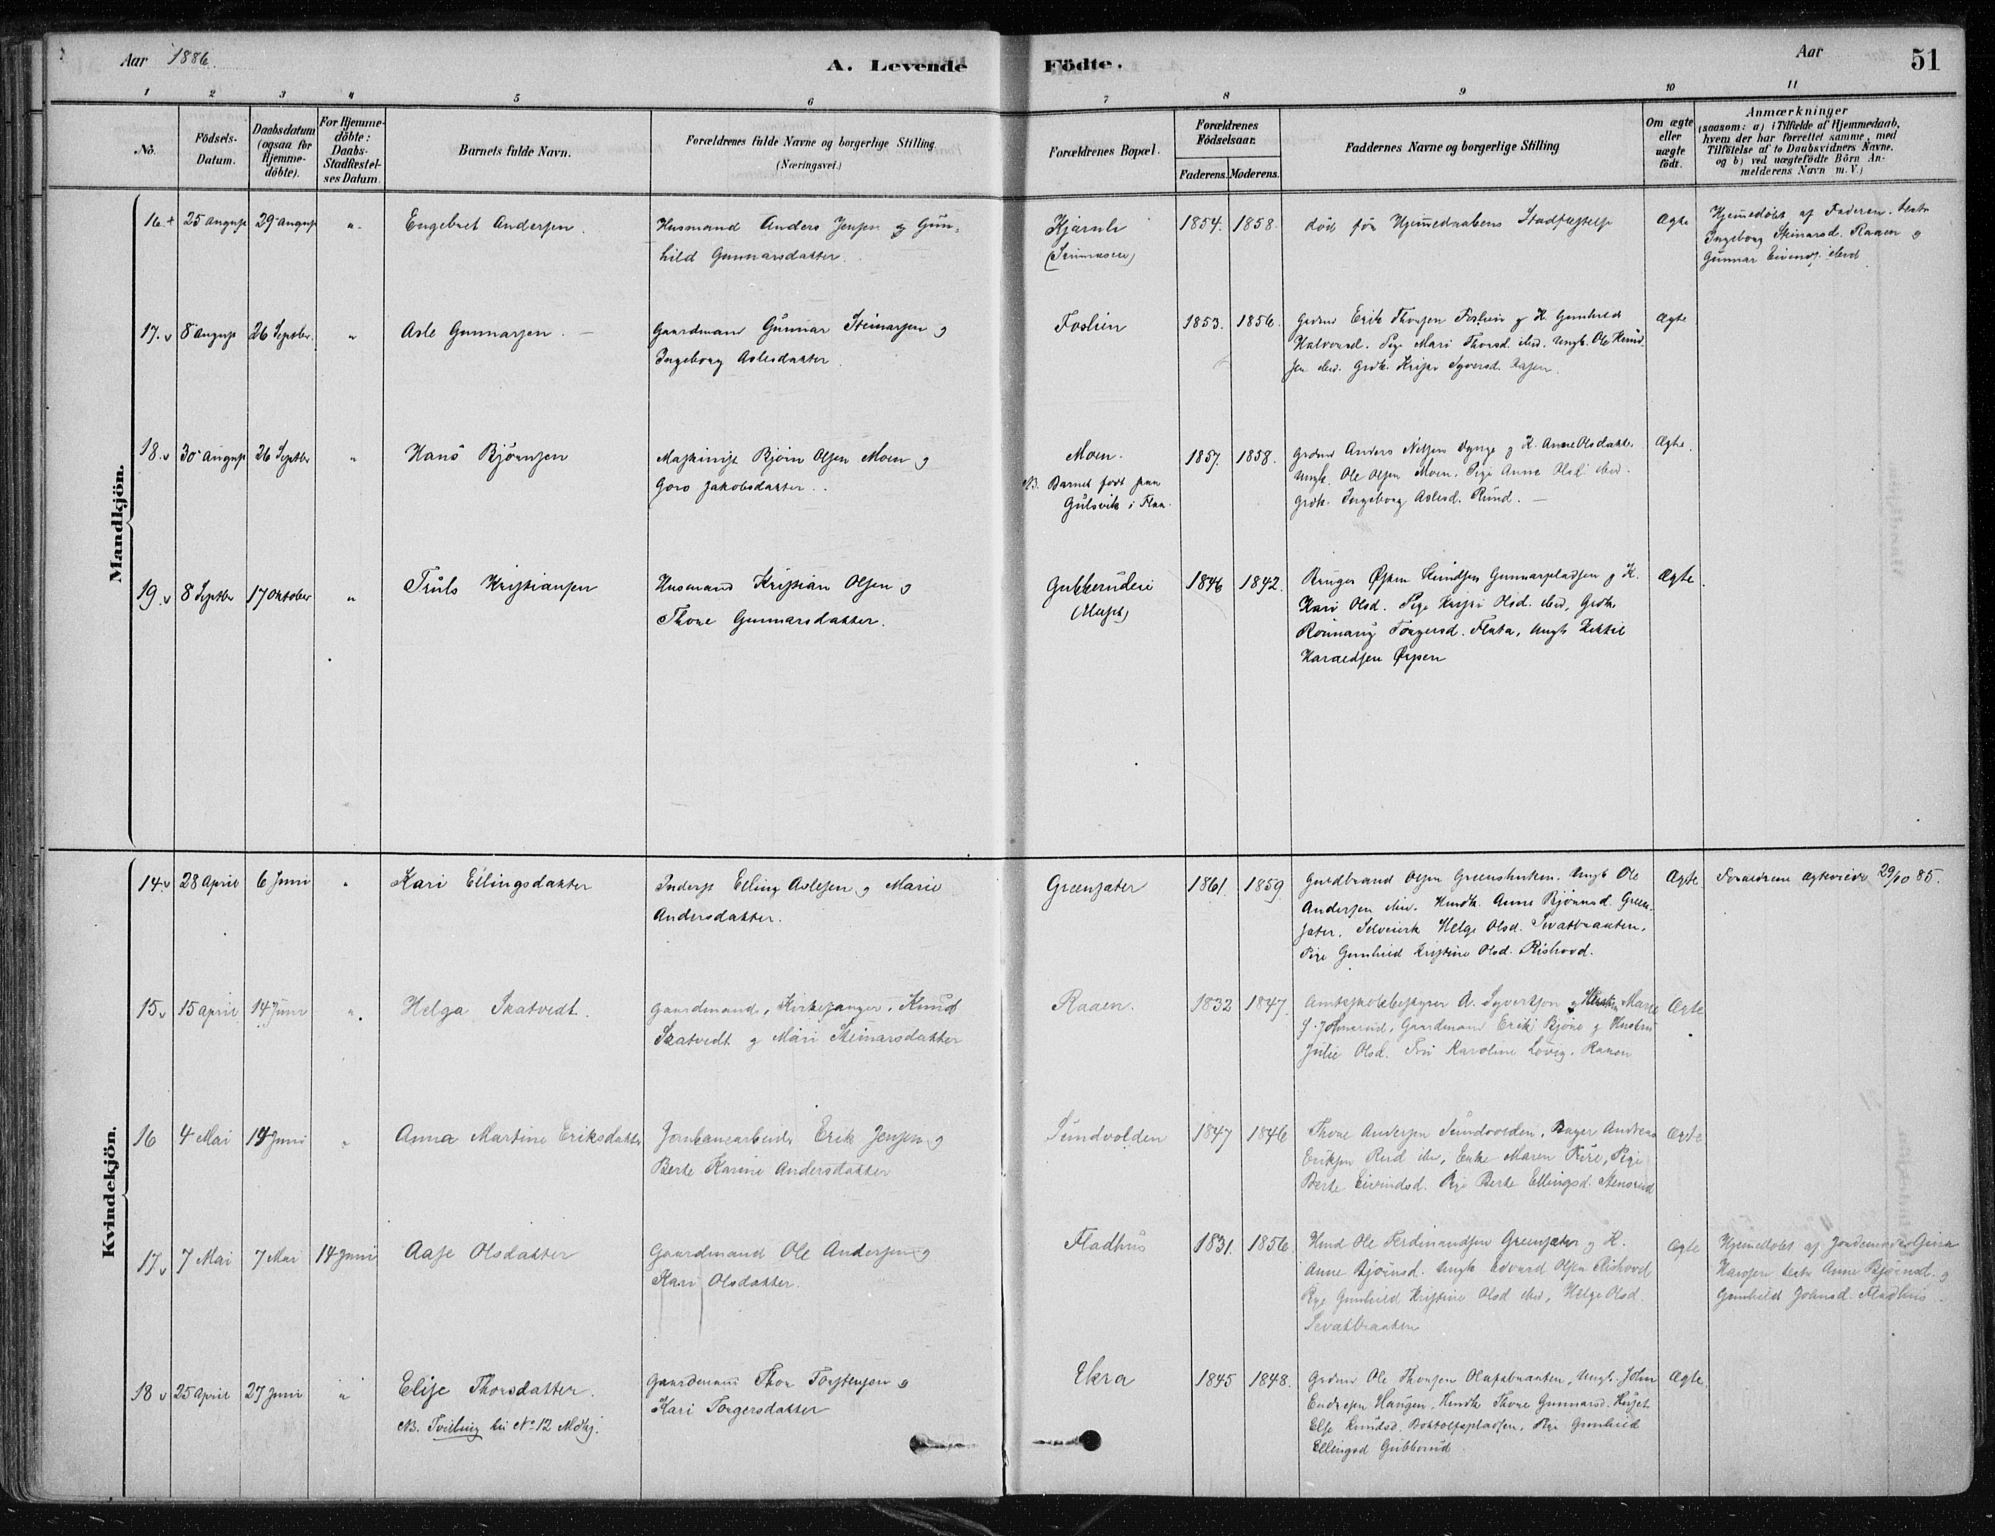 Aar 1886.
A. Levende Födte.
Aar
51
1 2 3 4 5 6 7 8 9 10 11
No.
Födsels-Datum.
Daabsdatum (ogsaa for Hjemme-döbte).
For Hjemme-döbte: Daabs-Stadfæstel-ses Datum.
Barnets fulde Navn.
Forældrenes fulde Navne og borgerlige Stilling (Næringsvei.)
Forældrenes Bopæl.
Forældrenes Födselsaar.
Faderens. Moderens.
Faddernes Navne og borgerlige Stilling
Om ægte eller uægte födt.
Anmærkninger
(saasom: a) i Tilfælde af Hjemmedaab,
hvem der har forrettet samme, med
Tilföielse af to Daabsvidners Navne.
og b) ved uægtefödte Börn An-
melderens Navn m.V.)
Mandkjön.
16.+ 25 august 29 august " Engebret Andersen.
Husmand Anders Jensen og Gun-
hild Gunnarsdatter.
1854. 1858.
död før Hjemmedaabens Stadfæstelse
Ægte
Hjemmedøbt af Faderen.
Ingeborg Steinarsd. Raaen og
Gunnar
17.v 8 august 26 Septbr. " Asle Gunnarsen.
Gaardmand Gunnar Steinarsen og
Ingeborg Aslesdatter.
Foslien
1853. 1856.
Grdmd Erik Thorsen Foslien og H. Gunhild
Halvorsd. Pige Mari Thorsd. ibid. Ungk. Ole Knud-
sen ibid. Grdk. Kristi Syversd.
Ægte
18.v 30 august 26 Septbr " Hans Bjørnsen
Maskinist Bjørn Olsen Moen og
Goro Jakobsdatter.
Moen.
NB. Barnet født paa
Gulsvik i Flaa.
1857. 1858.
Grdmd Anders Nilsen og H. Anne Olsdatter
Ungk. Ole Olsen Moen. Pige Anne Olsd. ibid.
Grdk. Ingeborg Aslesd. Rund.
Ægte.
19.v 8 Septbr 17 Oktober " Truls Kristiansen
Husmand Kristian Olsen og
Thone Gunnarsdatter.
Gubberudeie
1846 1842.
Bruger Østen Knudsen Gunnarpladsen og H.
Kari Olsd. Pige Kristi Olsd. ibid, Grdk.
Rønnaug Torgersd. Flata, Ungk Kittil
Haraldsen
Ægte.
Kvindekjön.
14.v 28 April 6 Juni " Kari Ellingsdatter
Inderst Elling Aslesen og Marie
Andersdatter.
Greensæter
1861. 1859.
Guldbrand Olsen Ungk Ole
Andersen ibid. Anne Bjørnsd. Green-
sæter. Helge Olsd.
Pige Gunhild Kristine Olsd. Rishovd.
Ægte
Forældrene Ægteviede 29/10 85.
15.v 15 april 14 Juni " Helga Skatvedt.
Gaardmand, Kirkesanger, Knud
Skatvedt og Mari Steinarsdatter
Raaen.
1832 1847.
Amtsskolebestyrer A. Syvertsen og Marie
Gaardmand Erik Bjøre og Hustru
Julie Olsd. Karoline
Ægte
16 4 Mai 14 Juni " Anna Martine Eriksdatter
Jernbanearbeider Erik Jensen og
Berte Karine Andersdatter
Sundvolden
1847 1846
Thone Andersen Sundvolden, Andreas
Eriksen Enke Maren Pige
Berte Eivindsd. Pige Berte Ellingsd. Stensrud
Ægte
17.v 7 Mai 7 Mai 14 Juni Aase Olsdatter
Gaardmand Ole Andersen og
Kari Olsdatter.
Fladhus
1831. 1856.
Ole Ferdinandsen Greensæter og H.
Anne Bjørnsd. Ungk Edvard Olsen Rishovd
Pige Gunhild Kristine Olsd ibid, Helge Olsd.
Ægte
Hjemmedøbt af Jordemoder Gina
Anne Bjørnsd. og
Gunhild Johnsd. Fladhus.
18 v 25 April 27 Juni " Elise Thorsdatter.
NB. Tvilling til No 12 Mdkj.
Gaardmand Thor Torstensen og
Kari Torgersdatter
Ekra
1845 1848.
Grdmd Ole Thorsen Olafsbraaten, Ungk. John
Endresen Haugen, Thone Gunnarsd.
Else Knudsd. Pige Gunhild
Ellingsd Gubberud
Ægte.